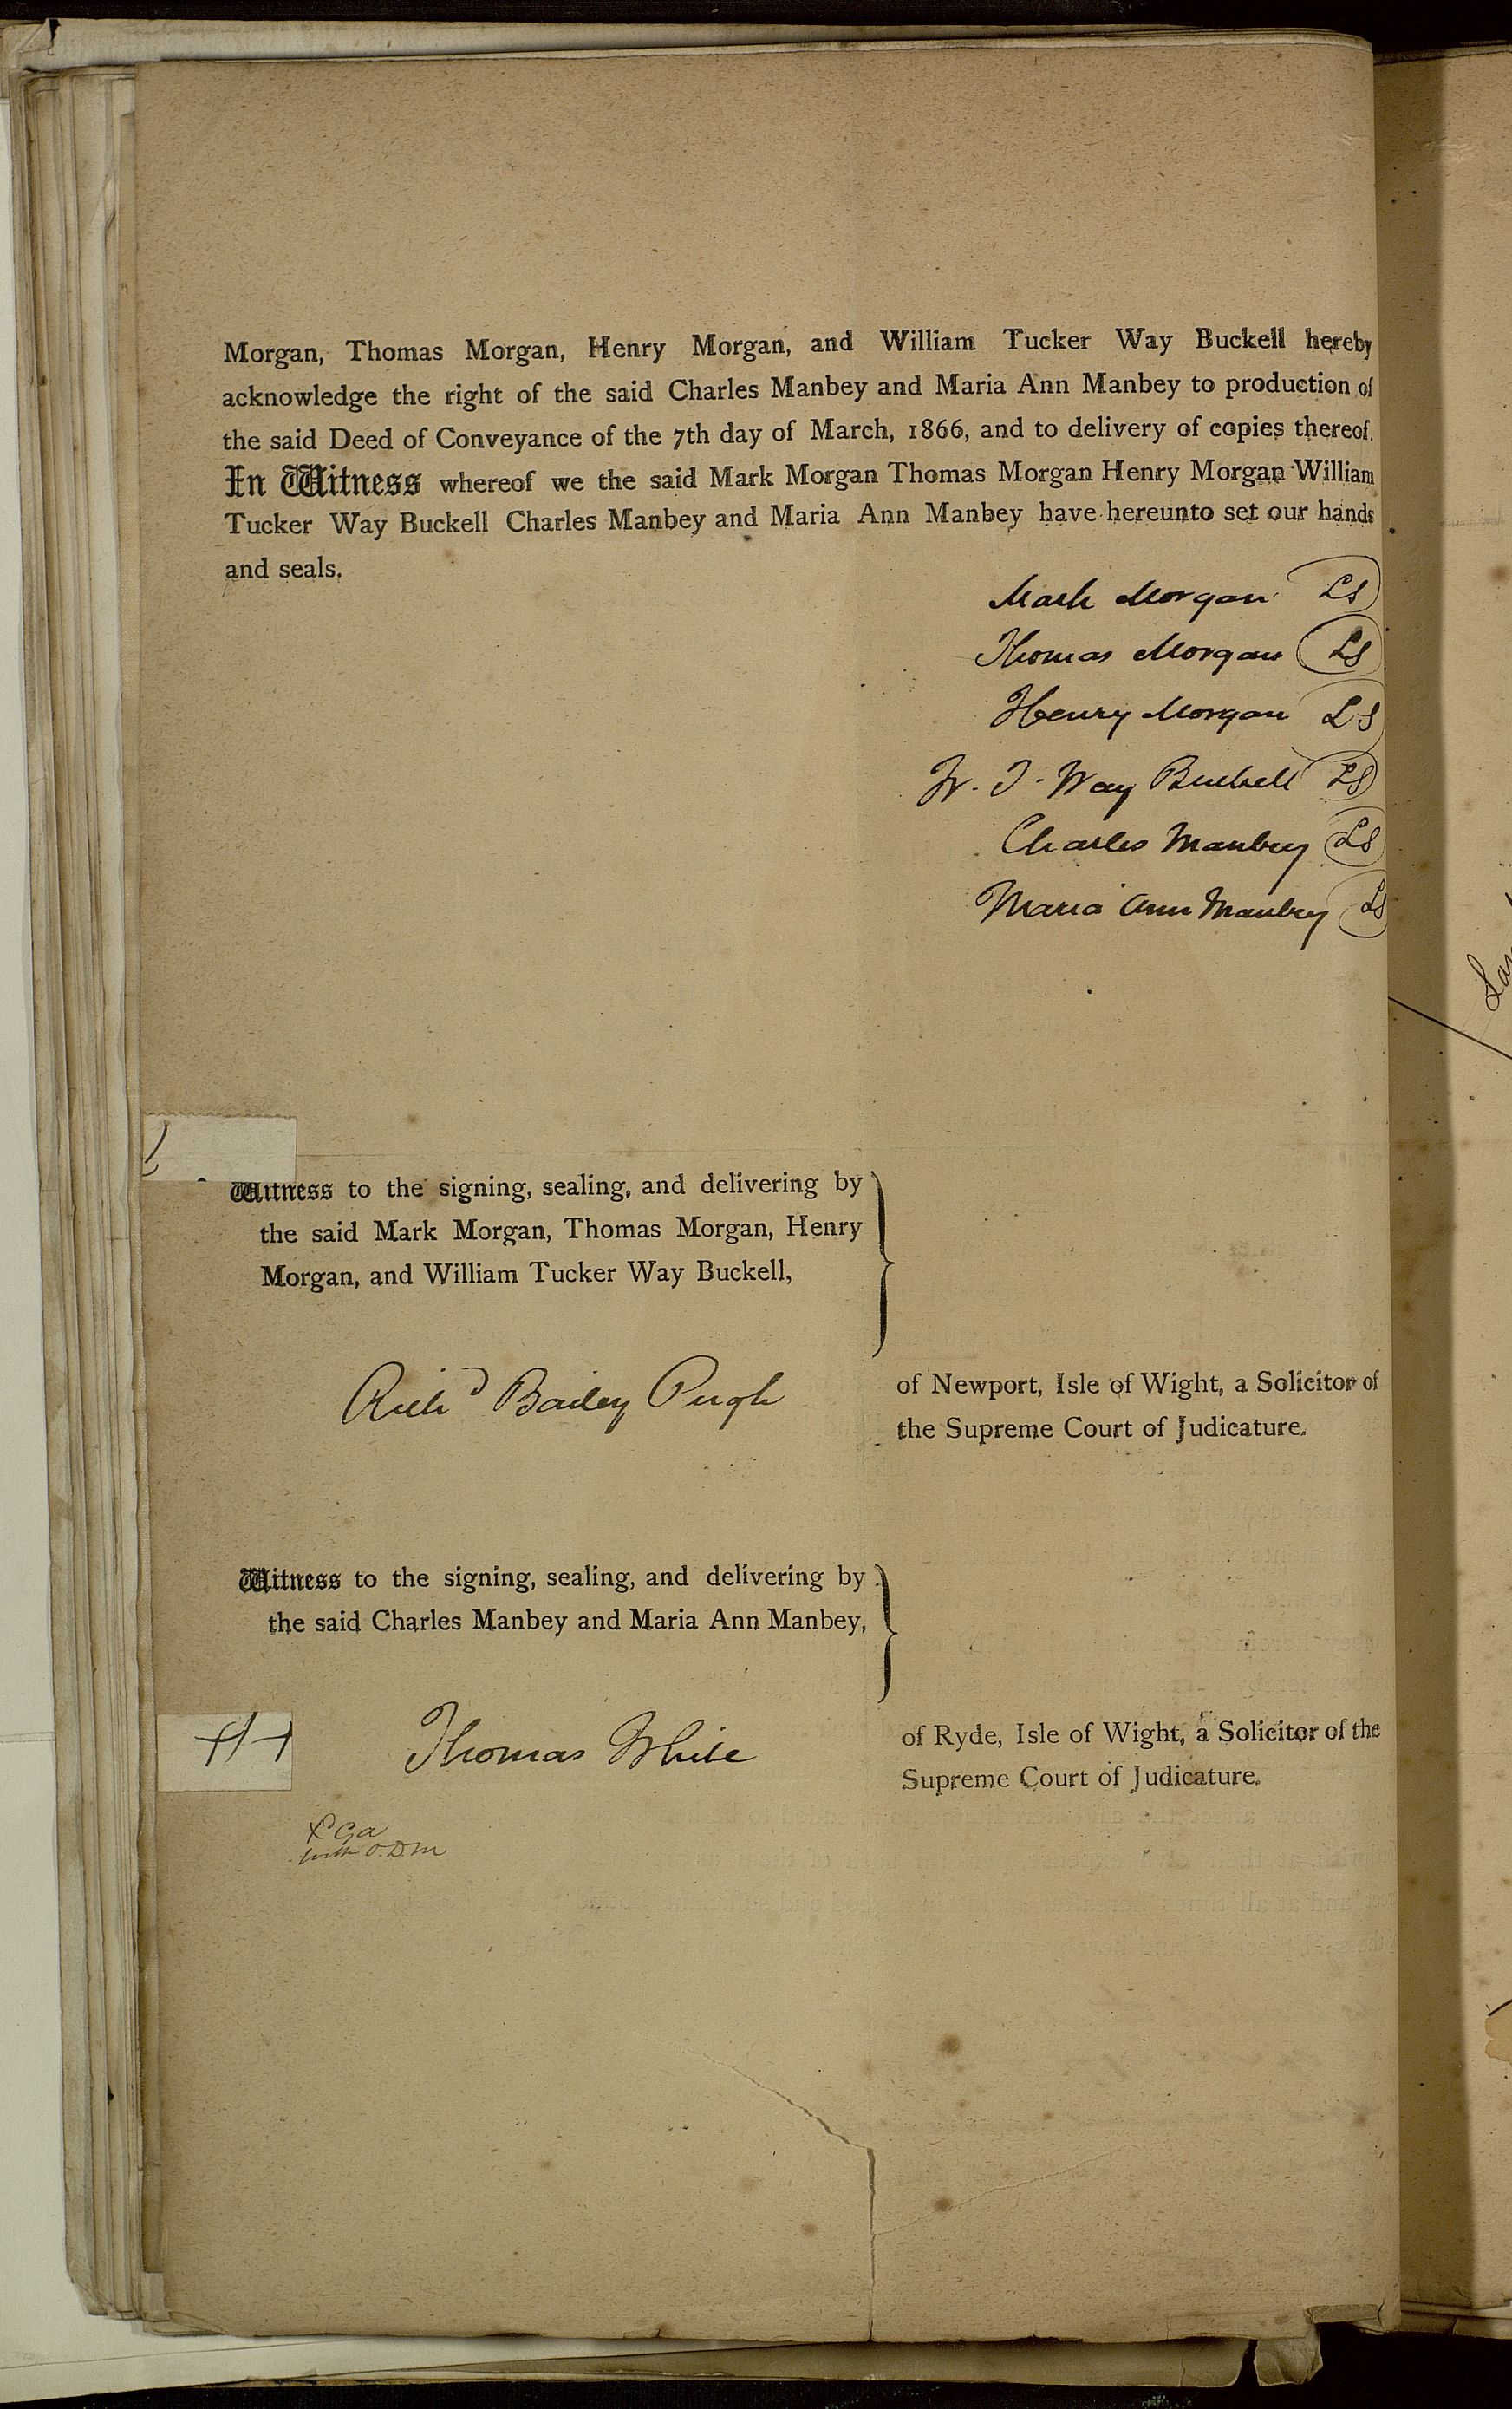 Morgan, Thomas Morgan, Henry Morgan, and William Tucker Way Buckell hereby
acknowledge the right of the said Charles Manbey and Maria Ann Manbey to production of
the said Deed of Conveyance of the 7th day of March, 1866, and to delivery of copies thereof.
In Witness whereof we the said Mark Morgan Thomas Morgan Henry Morgan William
Tucker Way Buckell Charles Manbey and Maria Ann Manbey have hereunto set our hands
and seals.
Mark Morgan LS
Thomas Morgan LS
Henry Morgan LS
W. T. Way Buckell LS
Charles Manbey LS
Maria Ann Manbey LS
Witness to the signing, sealing, and delivering by
the said Mark Morgan, Thomas Morgan, Henry
Morgan, and William Tucker Way Buckell,
Richd Bailey Pugh
of Newport, Isle of Wight, a Solicitor of
the Supreme Court of Judicature.
Witness to the signing, sealing, and delivering by
the said Charles Manbey and Maria Ann Manbey,
Thomas White
of Ryde, Isle of Wight, a Solicitor of the
Supreme Court of Judicature.
with O.D.M